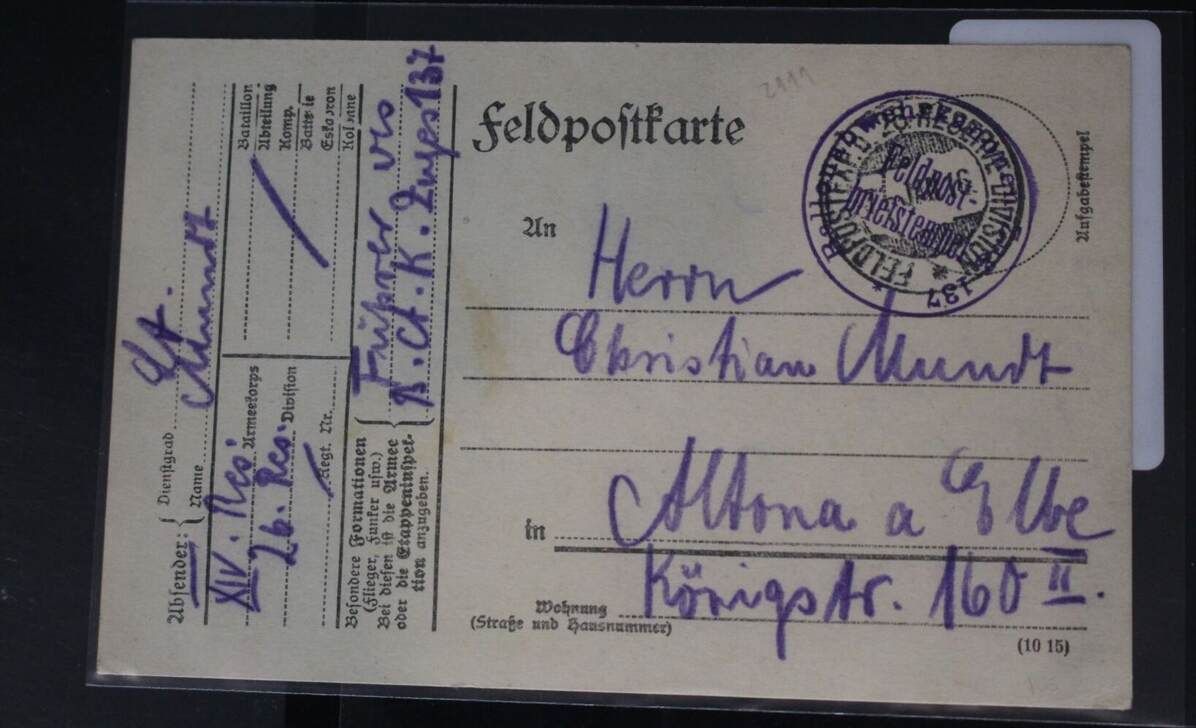 Feldpostkarte
2111
Aufgabestempel
FELDPOSTEXPED. 26. RESERVE-DIVISION
Feldpost-
briefstempel
* 137
An
Herrn
Christian Mundt
in Altona a Elbe
Wohnung
(Straße und Hausnummer)
Königstr. 160 II.
(10 15)
Absender:
Dienstgrad Lt.
Name Mundt
XIV. Res. Armeekorps
26. Res. Division
Regt. Nr.
Bataillon
Abteilung
Komp.
Batterie
Eskadron
Kolonne
Besondere Formationen
(Flieger, Funker usw.)
Bei diesen ist die Armee
oder die Etappeninspek-
tion anzugeben.